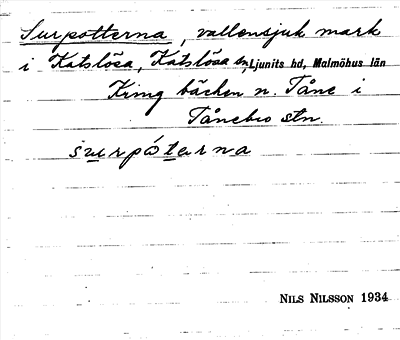 Surpotterna, vallensjuk mark
i Katslösa, Katslösa sn, Ljunits hd, Malmöhus län
Kring bäcken n. Tåne i
Tånebro stn.
surpåtärna
NILS NILSSON 1934